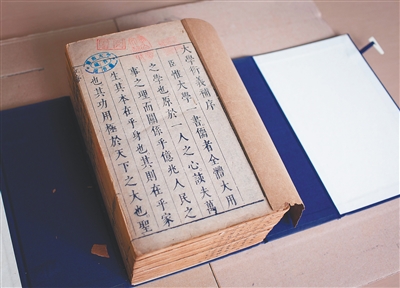 大學衍義補序
臣惟大學一書儒者全體大用
之學也原於一人之心該夫萬
事之理而關係乎億兆人民之
生其本在乎身也其則在乎家
也其功用極於天下之大也聖